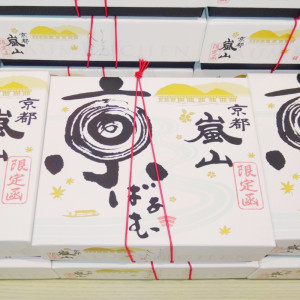 京都
嵐山
限定函
京
ばあむ
京都
嵐山
限定函
京都
嵐山